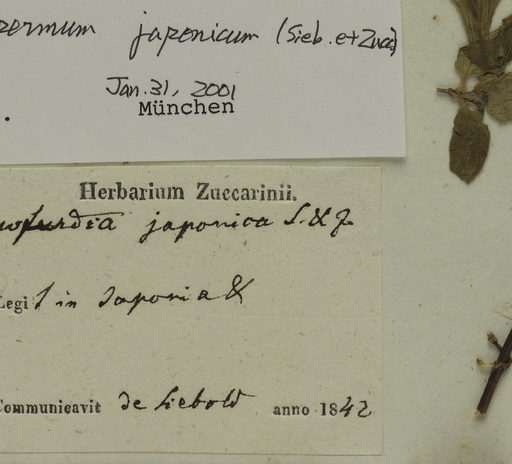 japonicum (Sieb. et Zucc.)
Jan. 31, 2001
München
Herbarium Zuccarinii.
japonica S. & Z.
Legi in Japonia
Communicavit de Siebold anno 1842